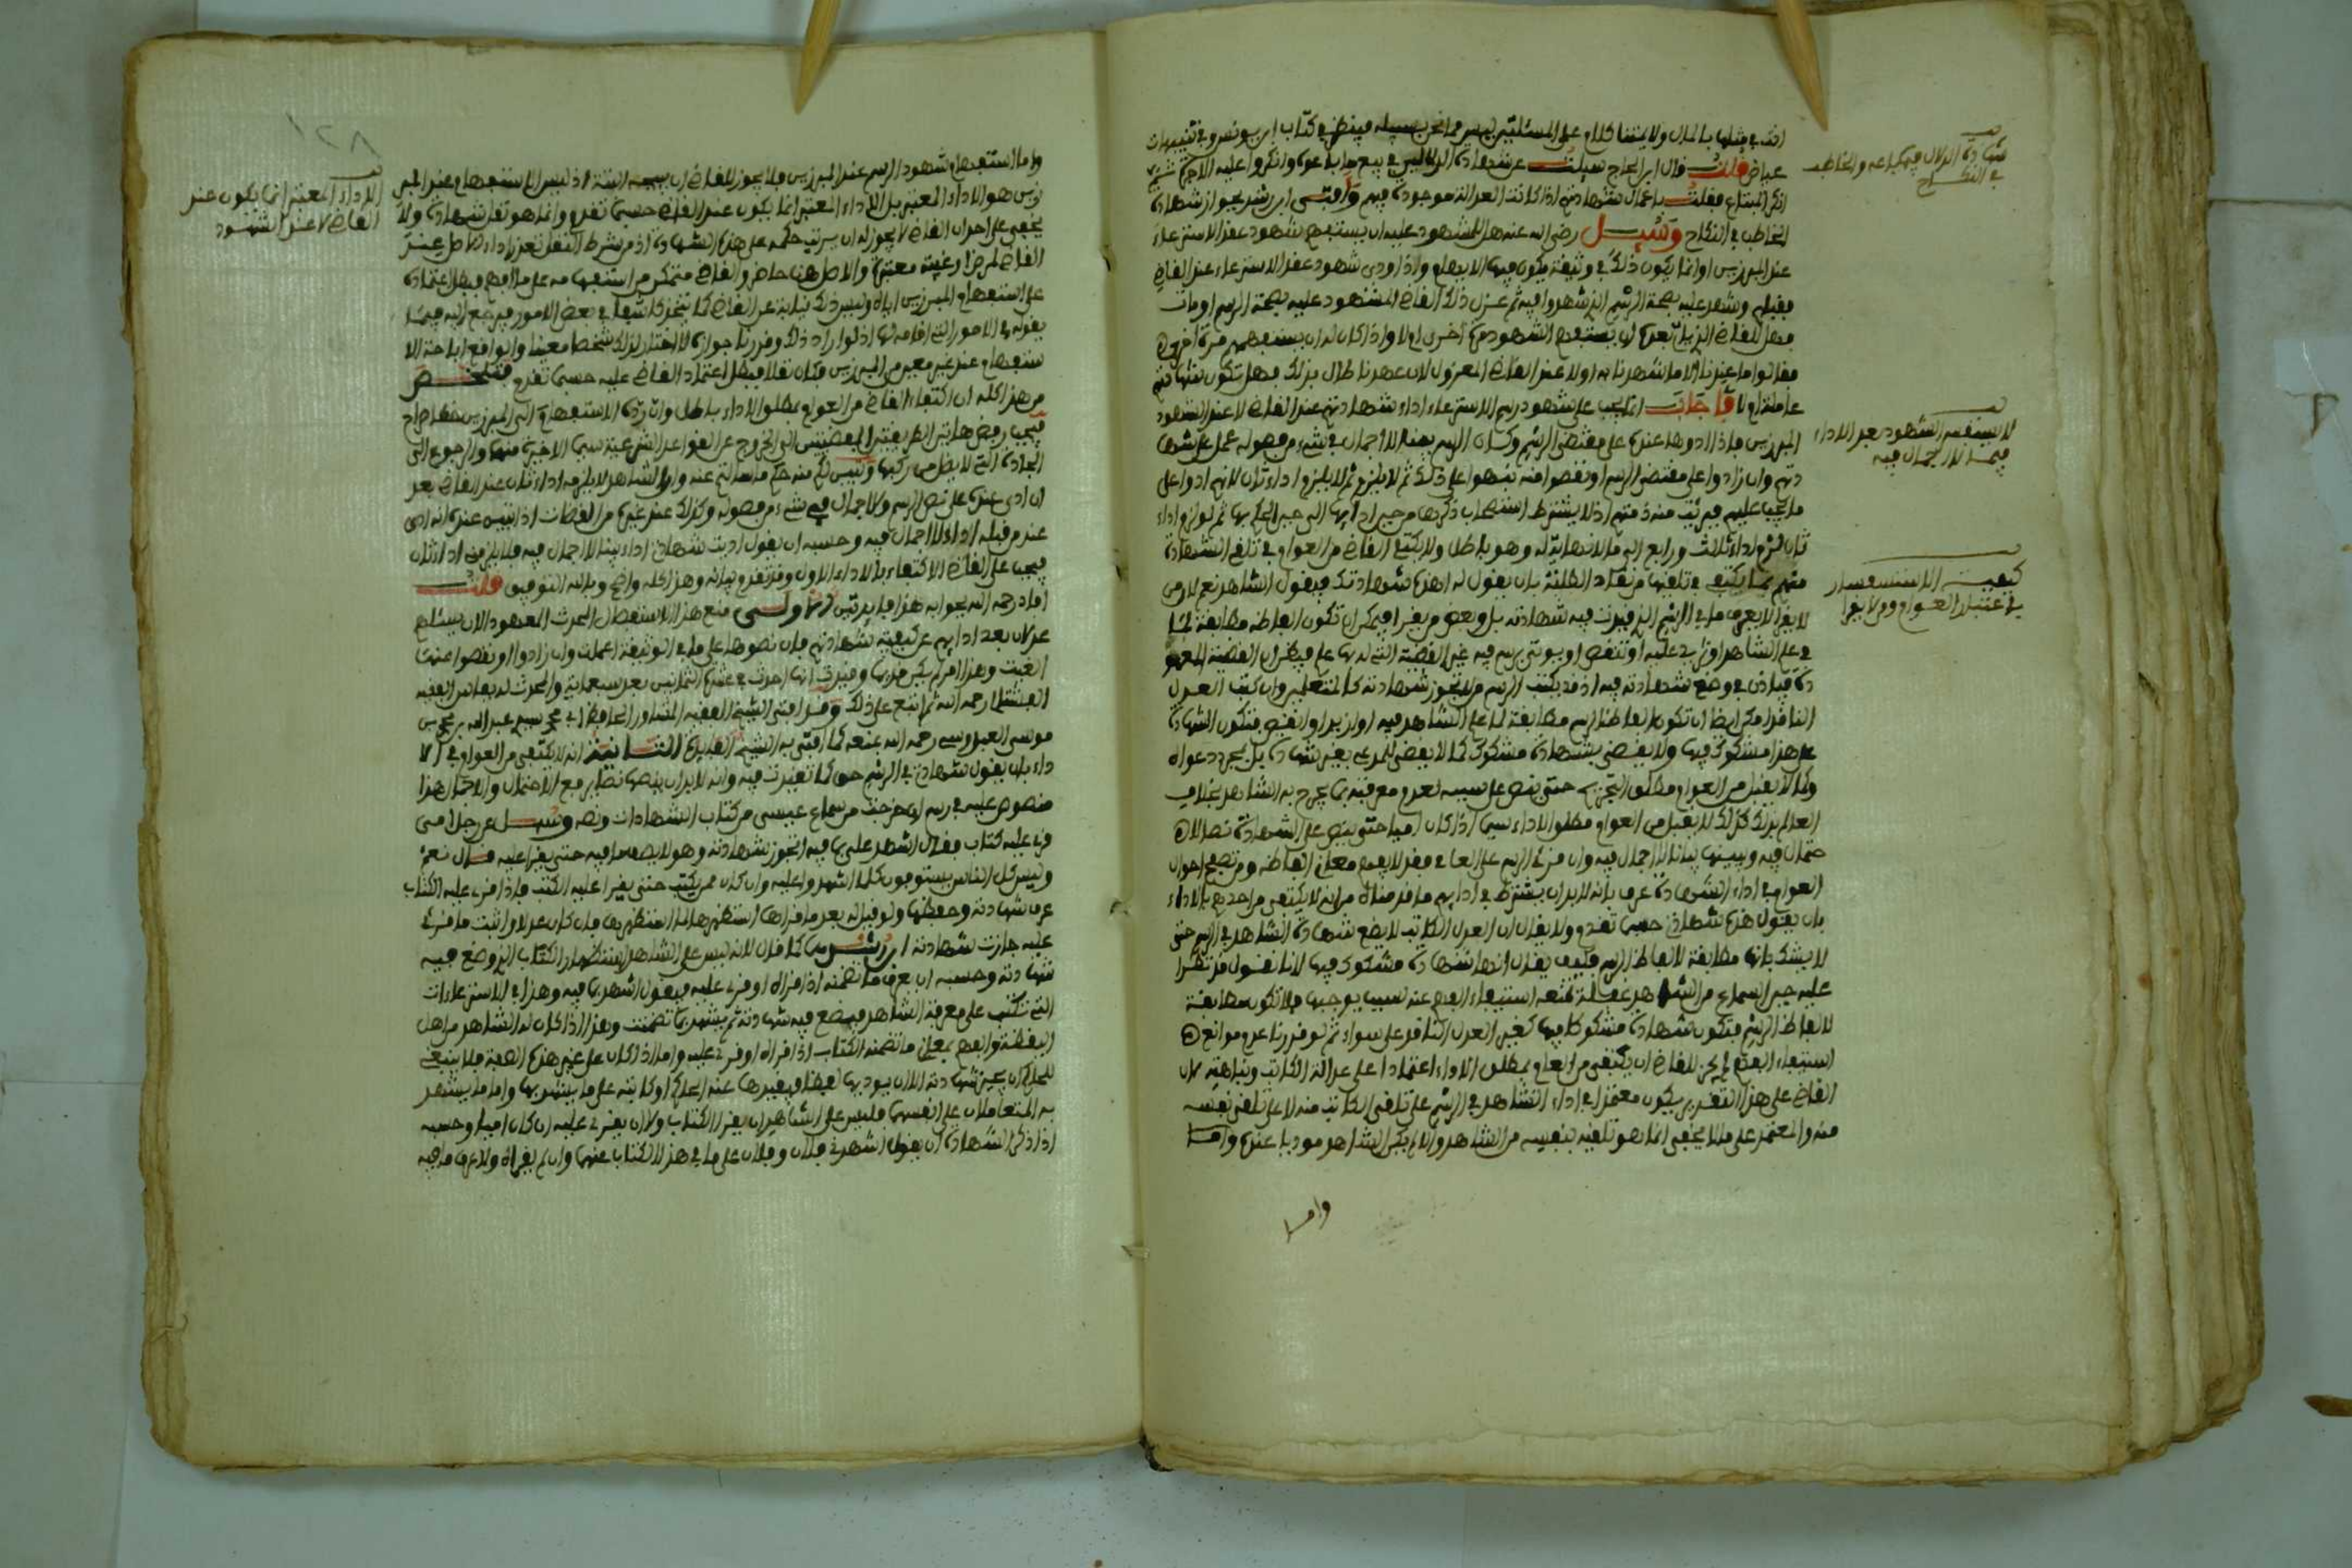 عياض قلت قال ابن الحاج سيلت عن شهادة الدلالين في بيع
انكر المبتاع فقلت باعمال شهادتهم اذا كانت العدالة موجودة فيهم وافتى ابن رشد بجواز شهادة
المخاطب في النكاح وسيل رضي الله عنه هل للمشهود عليه ان يستفهم شهود عقد الاسترعاء
عند المبرزين او انما يكون ذلك في وثيقة يكون فيها الابهام واذا ودى شهود عقد الاسترعاء عند القاضي
فقبلهم وشهد عليه بصحة الرسم الذي شهدوا فيه ثم عزل ذلك القاضي المشهود عليه بصحة الرسم او مات
فهل للقاضي الذي يلي بعده ان يستفهم الشهود مرة اخرى ام لا واذا كان له ان يستفهمهم مرة اخرى
فقالوا ما عندنا الا ما شهدنا به اولا عند القاضي المعزول لان عهدنا طال بذلك فهل تكون شهادتهم
عاملة ام لا فاجاب انما يجب على شهود رسم الاسترعاء اداء شهادتهم عند القاضي لا عند الشهود
المبرزين فاذا ادوها عنده على مقتضى الرسم وكان الرسم بينا لا اجمال في شيء من فصوله عمل على شها
دتهم وان زادوا على مقتضى الرسم او نقصوا منه نبهوا على ذلك ثم لا يلزمهم اداء ثان لانهم ادوا على
ما يجب عليهم فبرئت منه ذمتهم اذ لا يشترط استصحاب ذكرها من حين ادايها الى حين الحكم بها ثم لو لزم اداء
ثان لزم اداء ثالث ورابع الى ما لا نهاية له وهو باطل ولا يكتفي القاضي من العوام في تلقي الشهادة
منهم بما يكتفي في تلقيها من نقاد الطلبة بان يقول له اهذه شهادتك فيقول الشاهد نعم لان من
لا يقرا لا يعرف ما في الرسم الذي قيدت فيه شهادته بل وبعض من يقرا فيمكن ان تكون الفاظه مطابقة لما
النافذ امكن ايضا ان تكون الفاظ الرسم مطابقة لما علم الشاهد فيه او ازيد او انقص فتكون الشهادة
على هذا مشكوكا فيها ولا يقضى بشهادة مشكوك كما لا يقضى للمدعي بغير شهادة بل بمجرد دعواه
وكما لا يقبل من العوام مطلق التجريح حتى ينص على سببه لعدم معرفته بما يجرح به الشاهد بخلاف
العالم بذلك كذلك لا يقبل من العوام مطلق الاداء سيما اذا كان اميا حتى ينص على الشهادة نصا لا
حتمال فيه ويبينها بيانا لا اجمال فيه وان قرئ الرسم على العامي فقد لا يفهم معاني الفاظه ومن تصفح احوال
العوام في اداء الشهادة عرف بانه لا بد ان يشترط في ادايهم ما قدمناه من انه لا يكتفى من احدهم بالاداء
بان يقول هذه شهادتي حسبما تقدم ولا يقال ان العدل الكاتب لا يضع شهادة الشاهد في الرسم حتى
لا يشك بانها مطابقة لالفاظ الرسم فكيف يقال انها شهادة مشكوك فيها لانا نقول قد تطرا
عليه حين السماع من الشاهد غفلة تمنعه استيفاء الفهم عنه لسبب يوجبها فلا تكون مطابقة
لالفاظ الرسم فتكون شهادة مشكوكا فيها كغير العدل الناقد على سواء ثم لو قدرنا عدم موانع
استيفاء الفهم لم يجز للقاضي ان يكتفي من العامي بمطلق الاداء اعتمادا على عدالة الكاتب ونباهته لان
القاضي على هذا التقدير يكون معتمدا في اداء الشاهد في الرسم على تلقي الكاتب منه لا على تلقي نفسه
منه والمعتمد على ما لا يخفى انما هو تلقيه بنفسه من الشاهد والا لم يكن الشاهد موديا عنده واما
شهادة الدلال فيما باعه والخاطب
في النكاح
لا يستفهم الشهود بعد الاداء
فيما لا اجمال فيه
كيفية الاستفسار
واما
١٢٨
واما استفهام شهود الرسم عند المبرزين فلا يجوز للقاضي ان البتة اذ ليس الاستفهام عند المبر
زين هو الاداء المعتبر بل الاداء المعتبر انما يكون عند القاضي حسبما تقدم وانما هو نقل شهادة ولا
يخفى على احد ان القاضي لا يجوز له ان يرتب حكمه على هذه الشهادة اذ من شرط النقل تعذر اداء الاصل عند
القاضي لمرض او غيبة معتبرة والاصل هنا حاضر والقاضي متمكن من استفهامه على ما لا فهم فبطل اعتماده
على استفهام المبرزين اياه وليس ذلك نيابة عن القاضي كما يتخذ كاشفا في بعض الامور فيرجع اليه فيما
يقوله في الامور التي اقامه لها اذ لو اراد ذلك وقدرنا جوازه لاختار لذلك شخصا معينا والواقع اباحة الا
ستفهام عند غير معين من المبرزين فكان نقلا فبطل اعتماد القاضي عليه حسبما تقدم فتلخص
من هذا كله ان اكتفاء القاضي من العوام بمطلق الاداء باطل وان رد الاستفهام الى المبرزين خطا صراح
فيجب رفض هاتين الطريقتين المفضيتين الى الخروج عن القواعد الشرعية سيما الاخيرة منهما والرجوع الى
الجادة التي لا يضل من ركبها وتبين لكم منه حكم ما سالتم عنه وان الشاهد لا يلزمه اداء ثان عند القاضي بعد
ان ادى عنده على نص الرسم ولا اجمال في شيء من فصوله وكذلك عند غيره من القضاة اذا تبين عنده انه ادى
عند من قبله اداء لا اجمال فيه وحسبه ان يقول اديت شهادتي اداء بينا لا اجمال فيه فلا يلزمني اداء ثان
فيجب على القاضي الاكتفاء بالاداء الاول وقد تقدم بيانه وهذا كله واضح وبالله التوفيق قلت
افاد رحمه الله بجوابه هذا فايدتين الاولى منع هذا الاستفصال المحدث المعهود الان يسئلهم
عدلان بعد ادايهم عن كيفية شهادتهم فان نصوها على ما في الوثيقة اعملت وان زادوا او نقصوا عنها
الغيت وهذا امر لم يكن قديما وقيل انها احدثت في عشرة الثمانين بعد سبعماية والمحدث له بفاس الفقيه
القشتالي رحمه الله ثم اتبع على ذلك وقد افتى الشيخ الفقيه المشاور الحافظ ابو محمد سيدي عبد الله بن محمد بن
موسى العبدوسي رحمه الله بمنعه كما افتى به الشيخ الفايدة الثانية انه لا يكتفى من العوام في الا
داء بان يقول شهادتي في الرسم حق كما تقيدت فيه وانه لا بد ان ينصها نصا يرفع الاحتمال والاجمال هذا
منصوص عليه في رسم ان خرجت من سماع عيسى من كتاب الشهادات ونصه وسيل عن رجل امي
قرئ عليه كتاب فقال اشهد علي بما فيه اتجوز شهادته وهو لا يصف ما فيه حتى يقرا عليه قال نعم
وليس كل الناس يستوعبون كل ما اشهدوا عليه وان كان ممن يكتب حتى يقرا عليه الكتب فاذا قرئ عليه الكتاب
عرف شهادته وحفظها ولو قيل له بعد ما قراها استظهرها لما استظهرها فان كان عدلا واثبت ما قرئ
عليه جازت شهادته ابن رشد كما قال لانه ليس على الشاهد استظهار الكتاب الذي وضع فيه
شهادته وحسبه ان يعرف ما تضمنه اذا قراه او قرئ عليه فيقول اشهد بما فيه وهذا في الاسترعاءات
التي تكتب على معرفة الشاهد فيضع فيه شهادته ثم يشهد بما تضمنت وهذا اذا كان الشاهد من اهل
اليقظة والفهم بمعاني ما تضمنه الكتاب اذا قراه او قرئ عليه واما اذا كان على غير هذه الصفة فلا ينبغي
للحاكم ان يجيز شهادته الا ان يوديها لفظا فيقيدها عنه الحاكم او كاتبه على ما يشهد بها واما ما يشهد
به المتعاملان على انفسهما فليس على الشاهد ان يقرا الكتاب ولا ان يقرئ عليه ان كان اميا وحسبه
اذا ذكر الشهادة ان يقول اشهدني فلان وفلان على ما في هذا الكتاب عنهما وان لم يقراه ولا عرف ما فيه
الاداء المعتبر انما يكون عند
القاضي لا عند الشهود